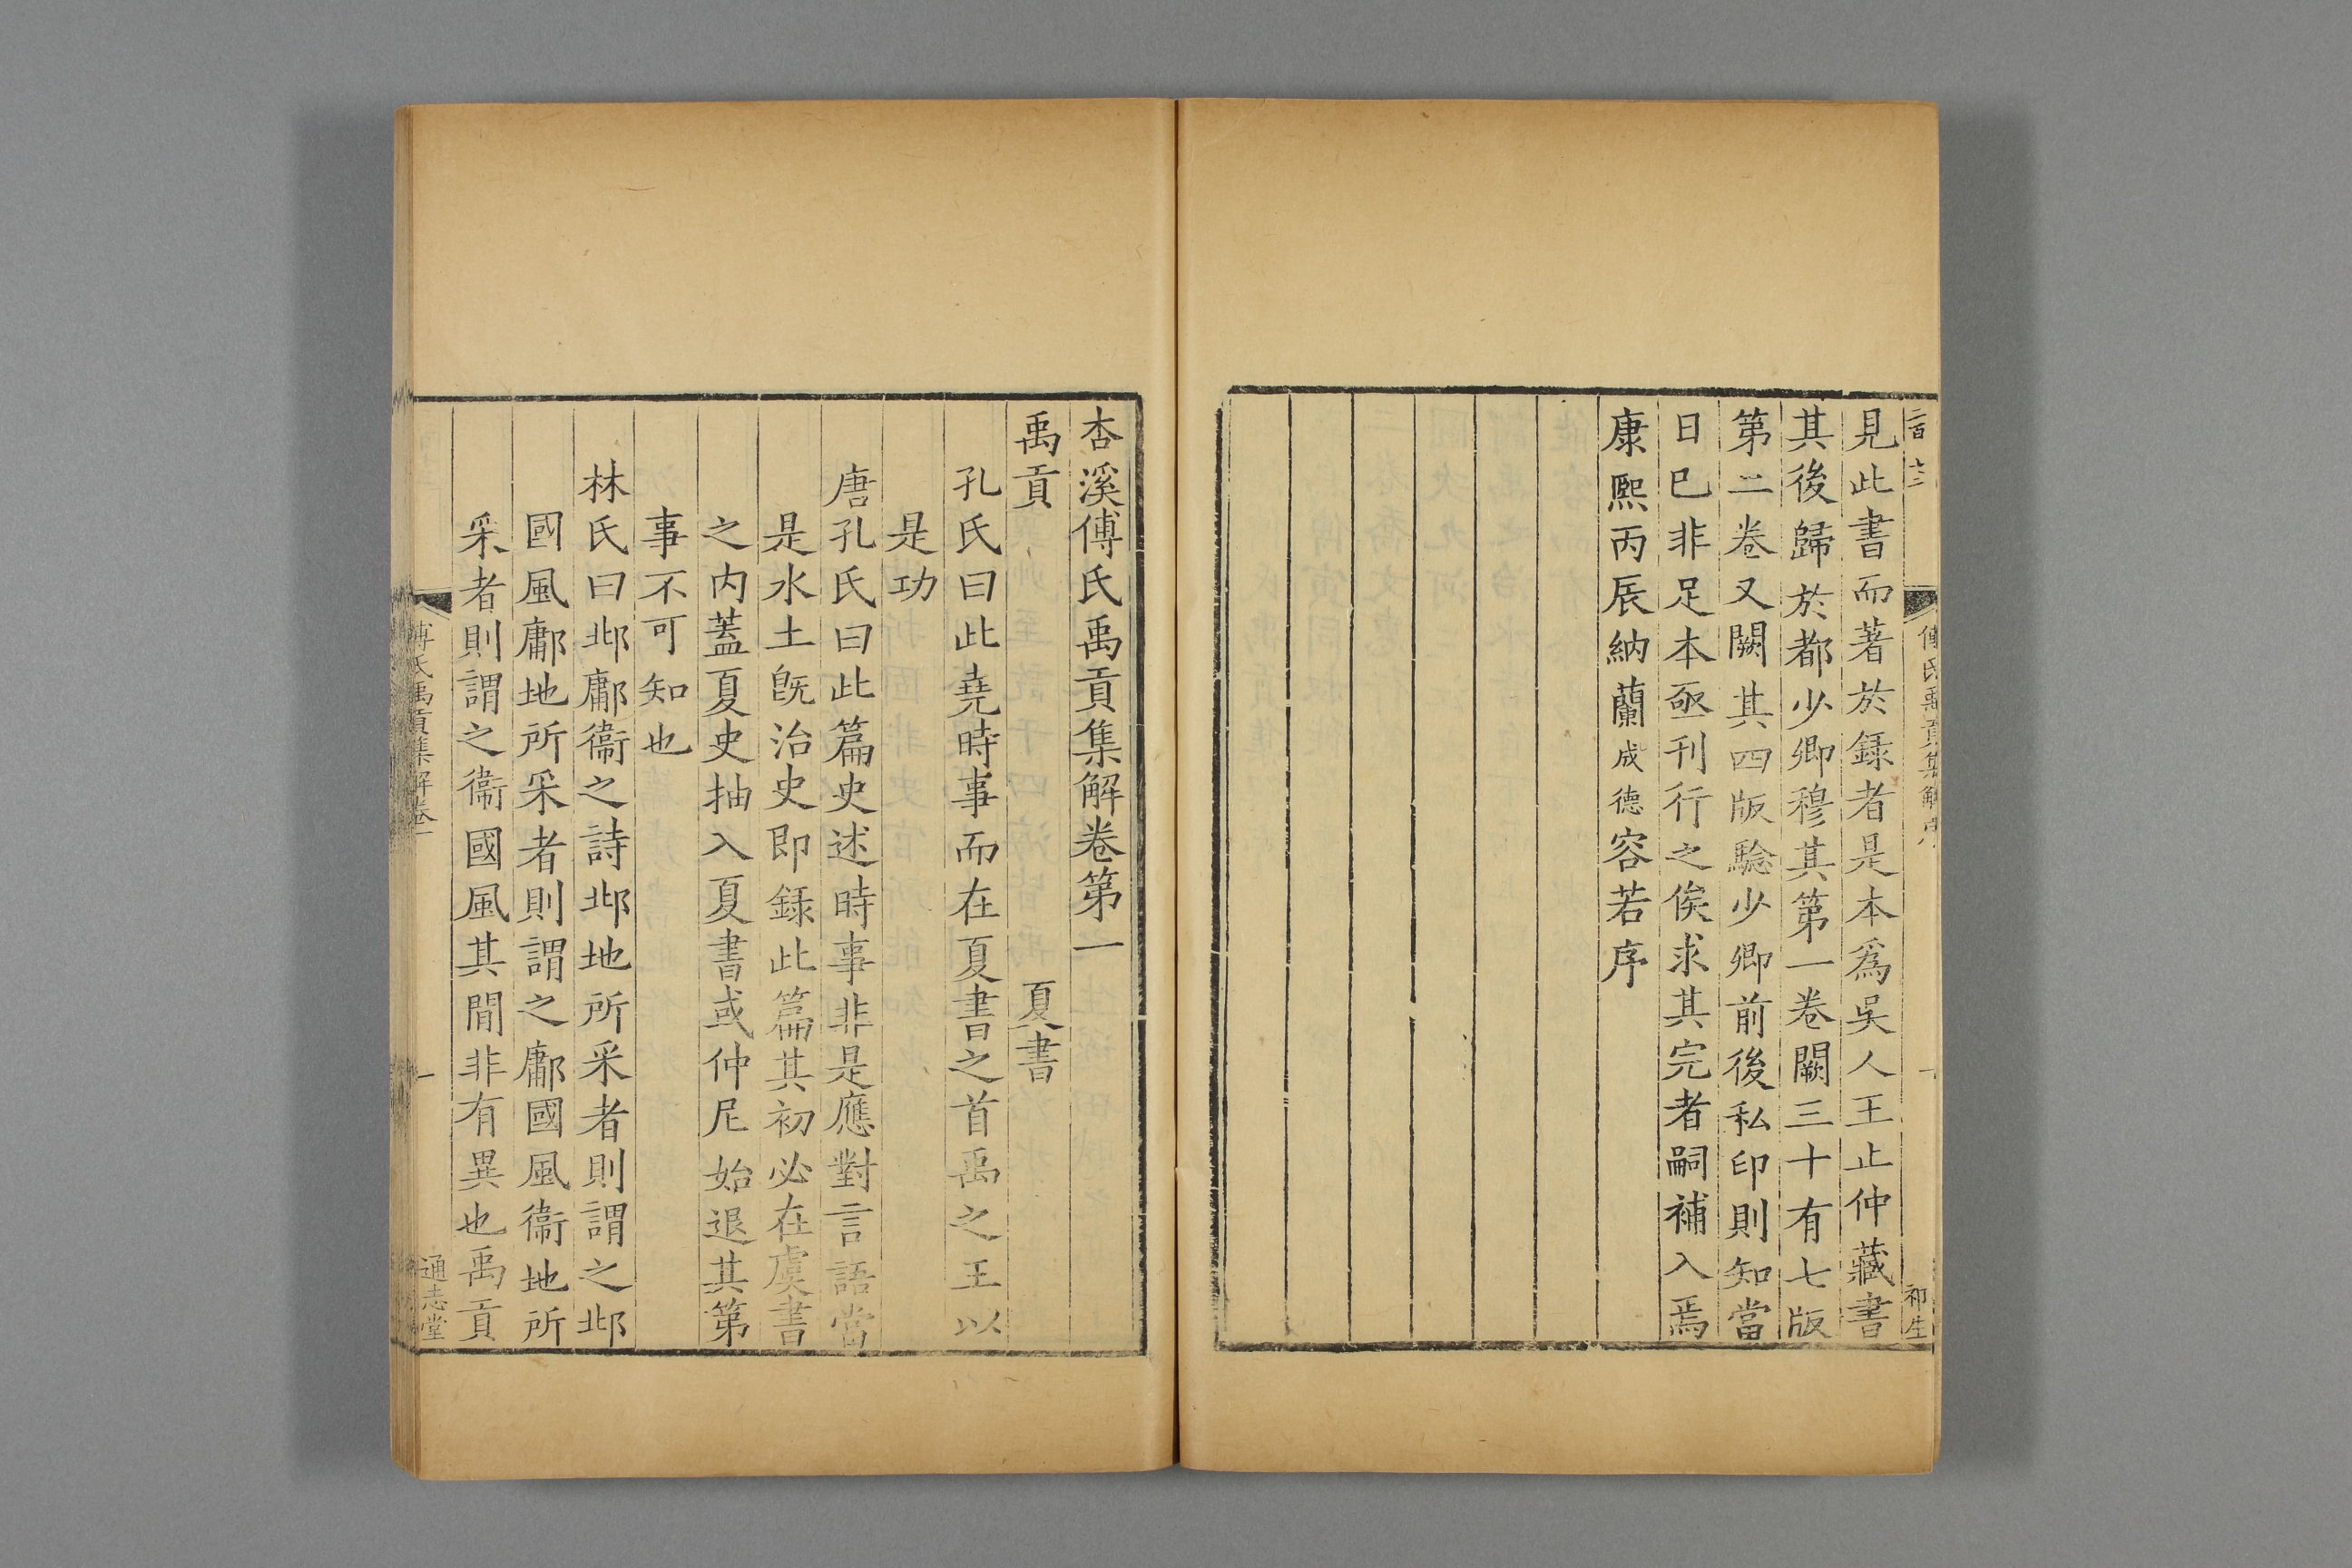 二百十三
傅氏禹貢集解序
祁生
見此書而著於録者是本爲吳人王止仲藏書
其後歸於都少卿穆其第一卷闕三十有七版
第二卷又闕其四版驗少卿前後私印則知當
日已非足本亟刊行之俟求其完者嗣補入焉
康熙丙辰納蘭成德容若序
杏溪傅氏禹貢集解卷第一
禹貢 夏書
孔氏曰此堯時事而在夏書之首禹之王以
是功
唐孔氏曰此篇史述時事非是應對言語當
是水土旣治史即録此篇其初必在虞書
之内蓋夏史抽入夏書或仲尼始退其第
事不可知也
林氏曰邶鄘衞之詩邶地所采者則謂之邶
國風鄘地所采者則謂之鄘國風衞地所
采者則謂之衞國風其間非有異也禹貢
傅氏禹貢集解卷一
一
通志堂